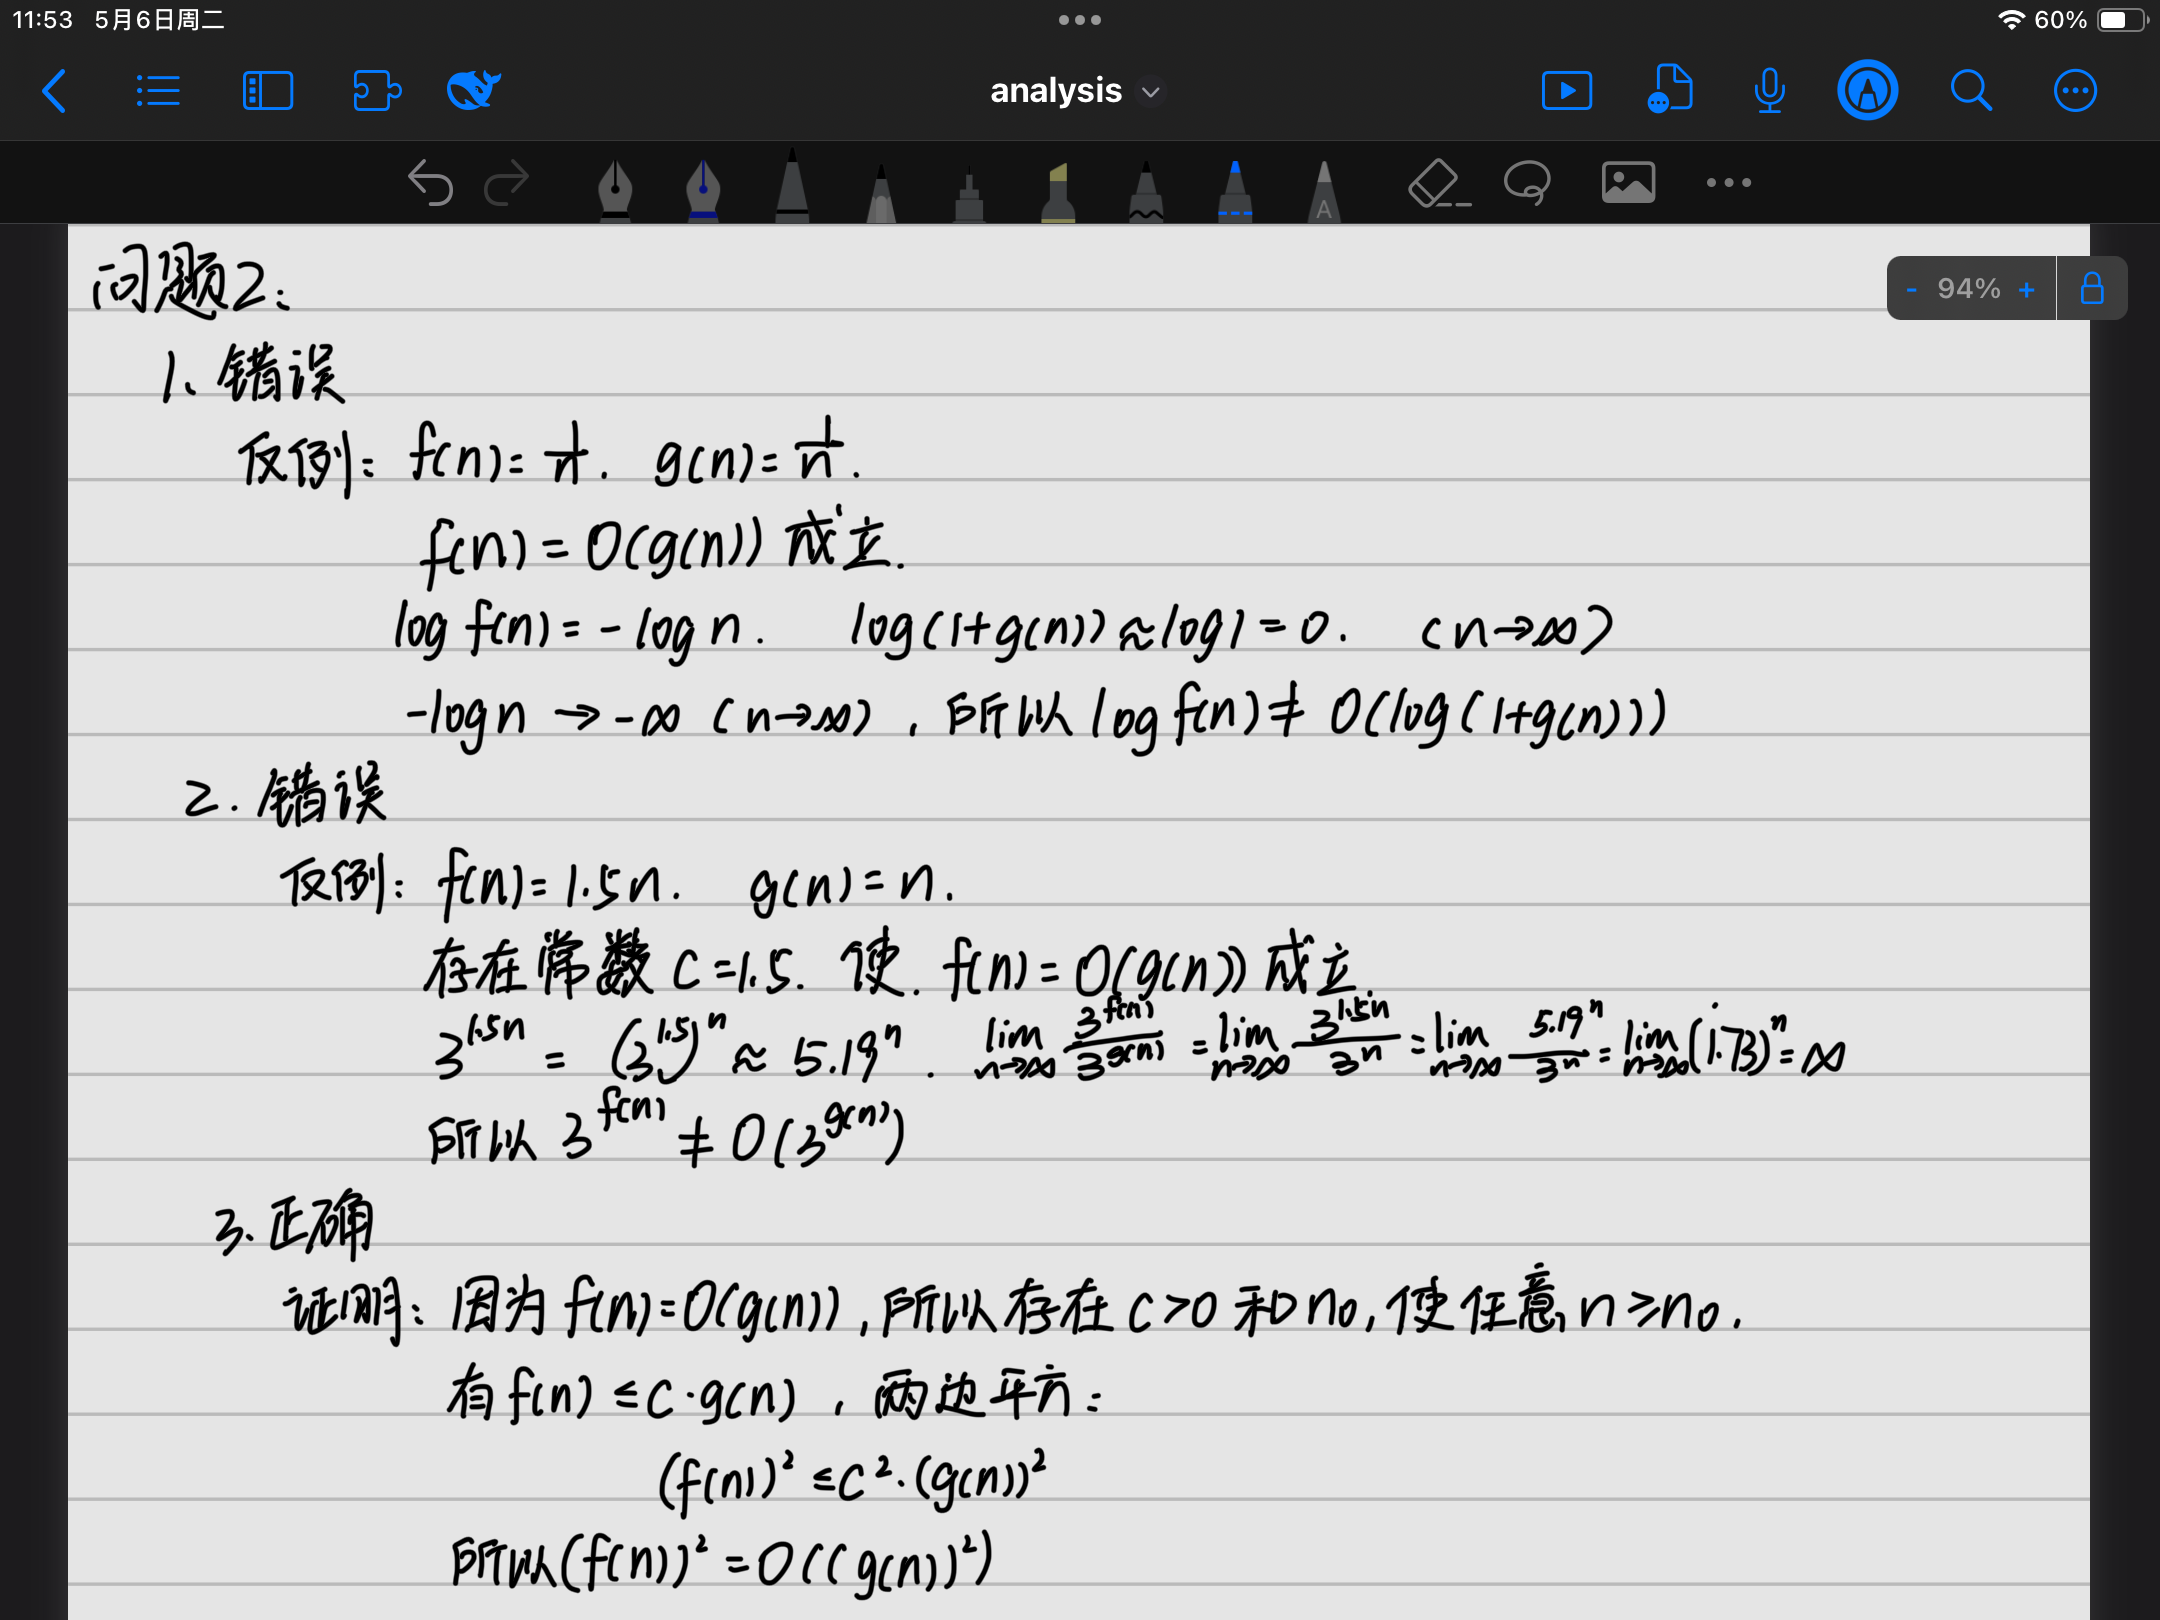 11:53 5月6日周二
60%
analysis
A
- 94% +
问题2:
1、错误
反例: f(n)=1/n. g(n)=1/n.
f(n)=O(g(n)) 成立.
log f(n)=-log n. log(1+g(n))≈log1=0. (n→∞)
-log n → -∞ (n→∞), 所以 log f(n)≠O(log(1+g(n)))
2. 错误
反例: f(n)=1.5n. g(n)=n.
存在常数 C=1.5. 使. f(n)=O(g(n)) 成立.
3^{1.5n} = (3^{1.5})^n ≈ 5.19^n. lim_{n→∞} 3^{f(n)}/3^{g(n)} = lim_{n→∞} 3^{1.5n}/3^n = lim_{n→∞} 5.19^n/3^n = lim_{n→∞} (1.73)^n = ∞
所以 3^{f(n)} ≠ O(3^{g(n)})
3. 正确
证明: 因为 f(n)=O(g(n)), 所以存在 C>0 和 n₀, 使任意 n≥n₀.
有 f(n) ≤ C·g(n), 两边平方:
(f(n))² ≤ C²·(g(n))²
所以 (f(n))² = O((g(n))²)